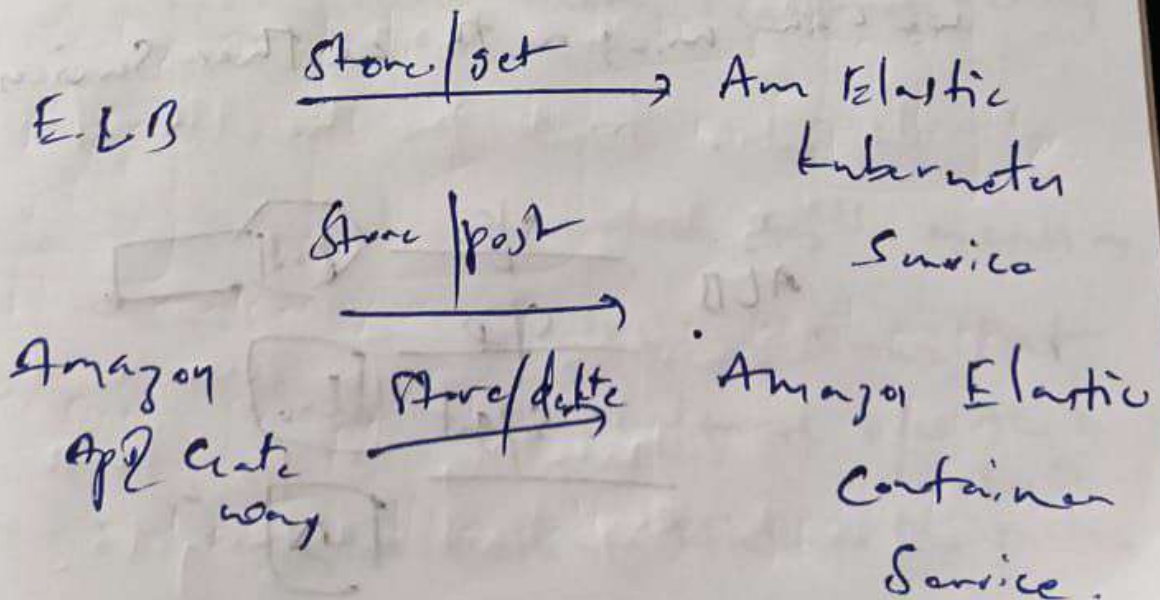 Store/get
E.L.B
Am Elastic
Kubernetes
Service
Store/post
Amazon
API Gate
way
Store/delete
Amazon Elastic
Container
Service.